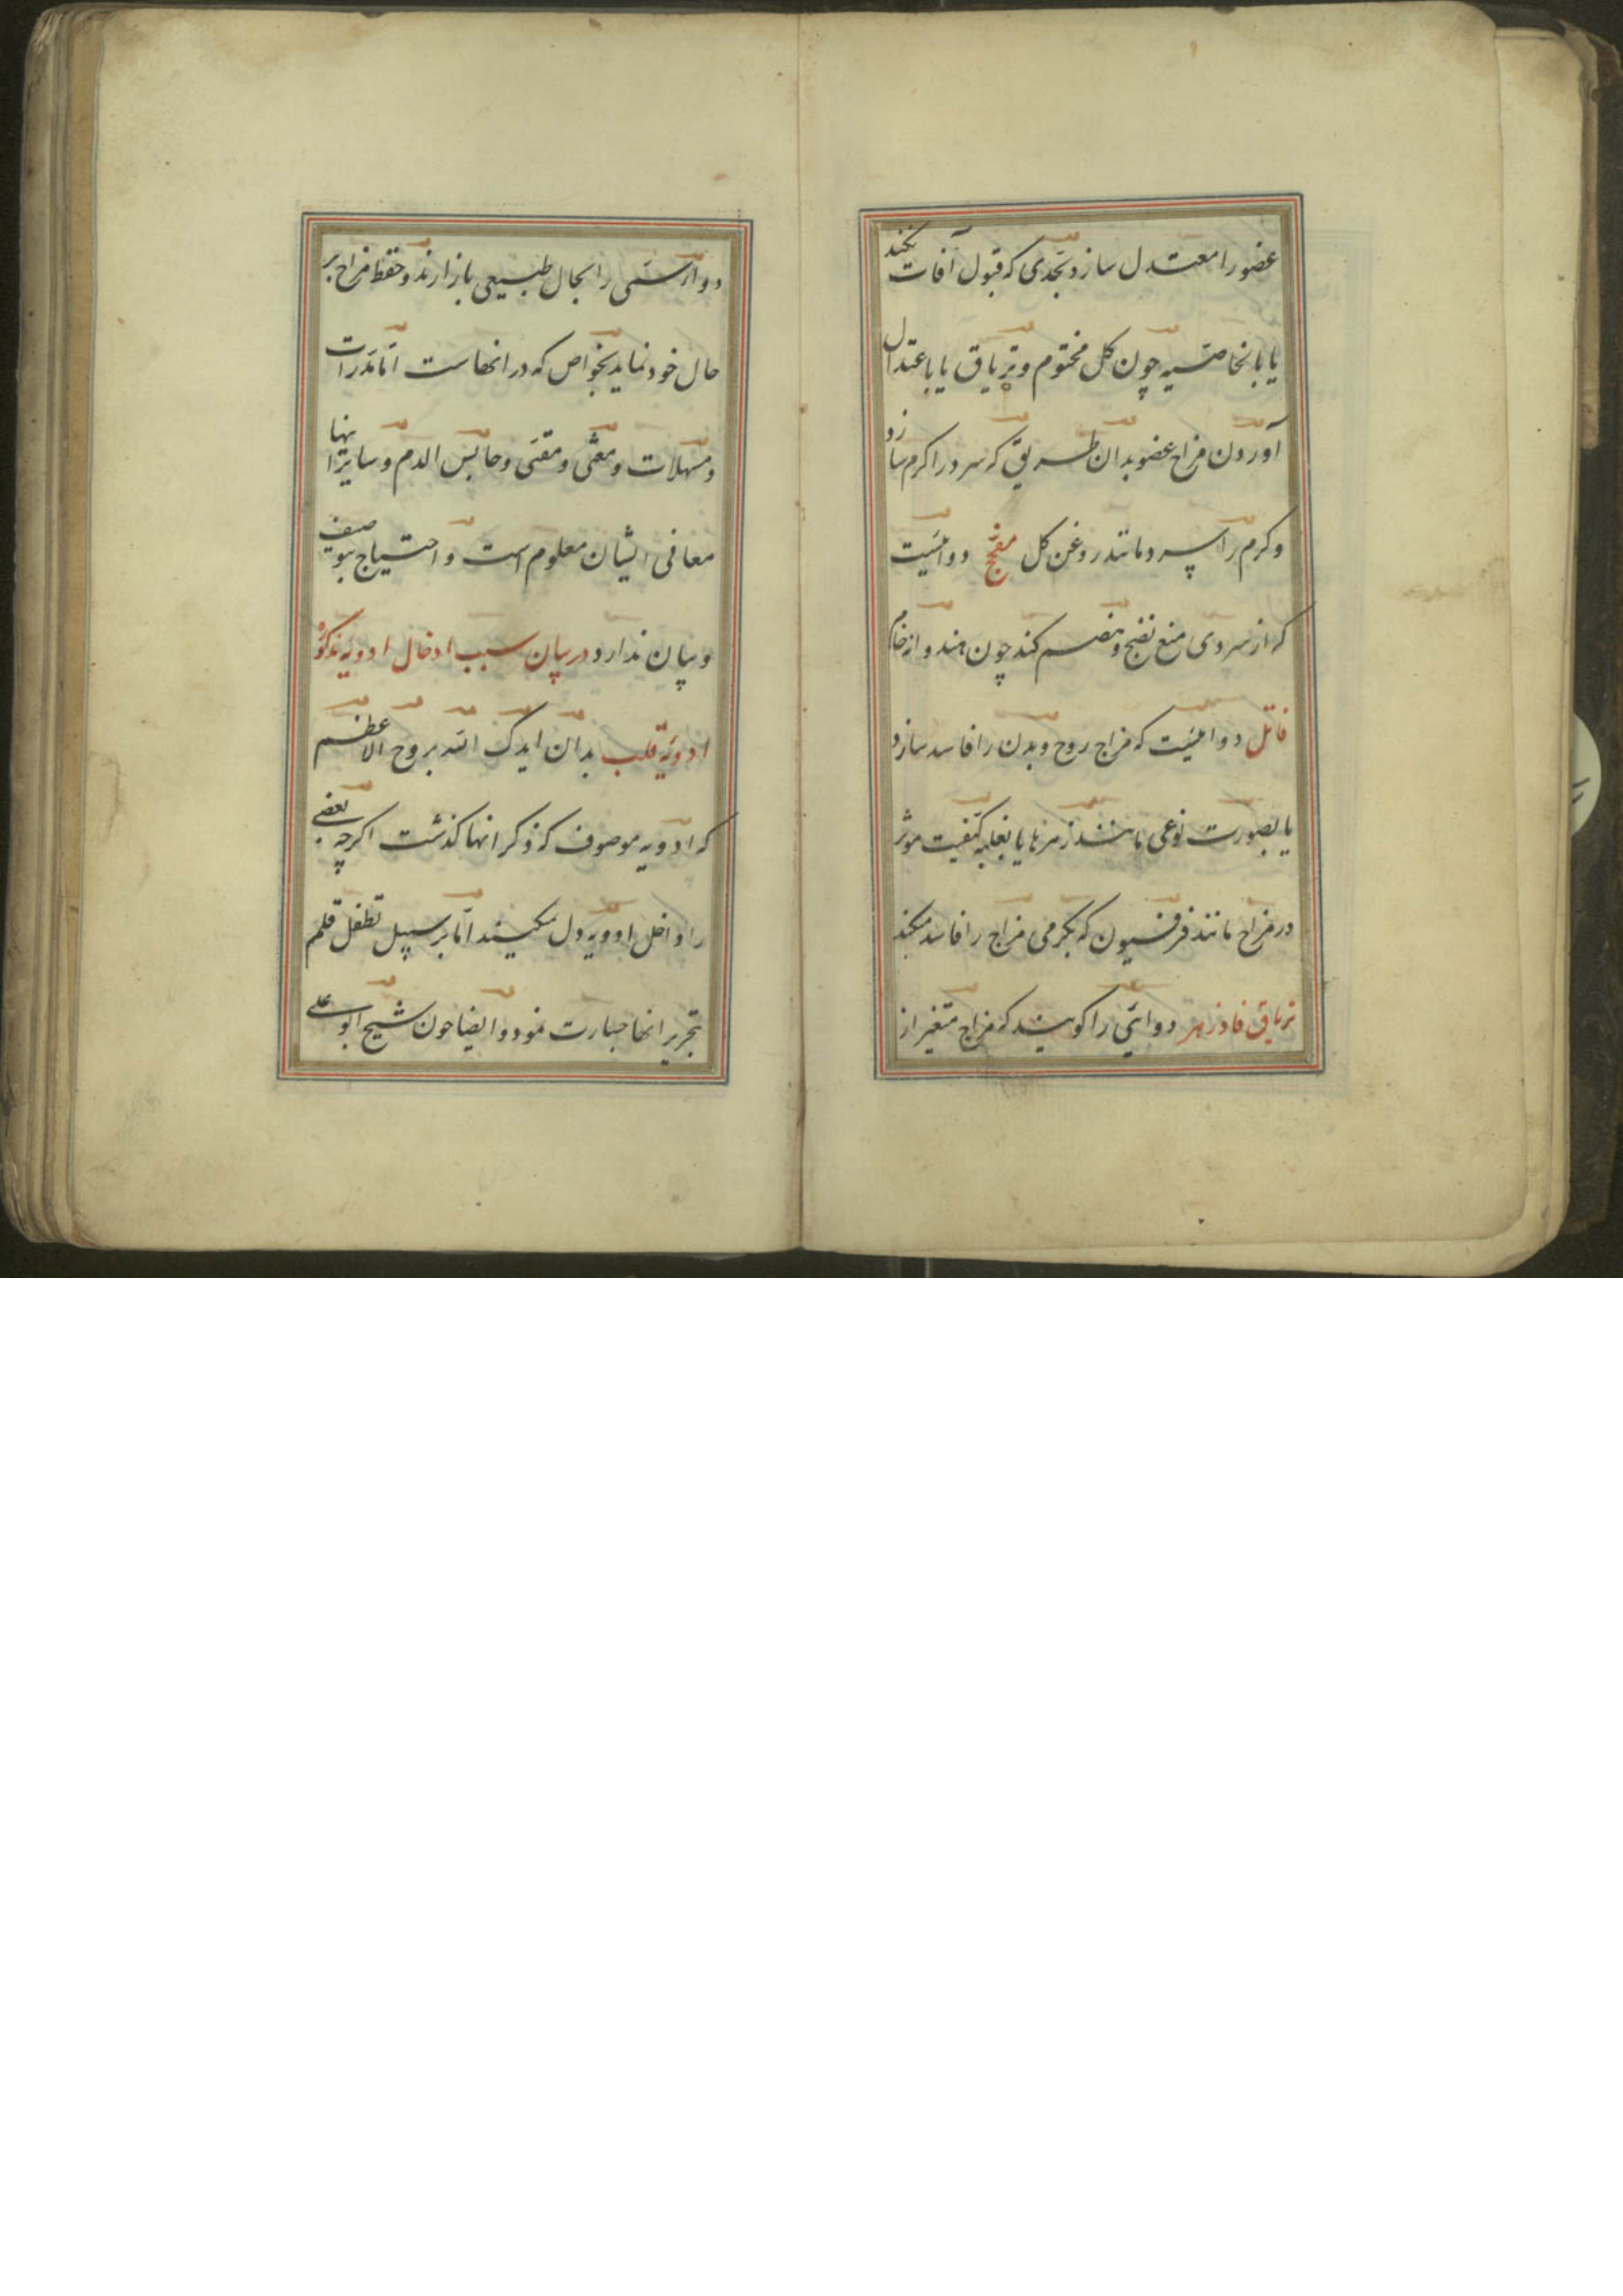 عضو را معتدل سازد بحدی که قبول آفات نکند
یا بالخاصیه چون کل مختوم و تریاق یا باعتدال
آوردن مزاج عضو بدان طریق که سرد را کرم سازد
و کرم را سرد مانند روغن کل مفجج دوائیست
که از سردی منع نضج و هضم کند چون هندوانه خام
قاتل دوائیست که مزاج روح و بدن را فاسد سازد
یا بصورت نوعی مانند زهرها یا بغلبه کیفیت موثر
در مزاج مانند فرفیون که بکرمی مزاج را فاسد میکند
تریاق فادزهر دوائی را کویند که مزاج متغیر از
دواء سمی را بحال طبیعی باز ارند و حفظ مزاج بر
حال خود نماید بخواص که در انهاست اما مدرات
و مسهلات و مغثی و مقئی و حابس الدم و سایر اینها
معانی ایشان معلوم است و احتیاج بتوصیف
و بیان ندارد در بیان سبب ادخال ادویه مذکوره
ادویه قلب بدان ایدک الله بروح الاعظم
که ادویه موصوف که ذکر انها کذشت اکرچه بعضی
را داخل ادویه دل نمیکنند اما بر سبیل تطفل قلم
بتحریر انها جسارت نمود و ایضا چون شیخ ابو علی